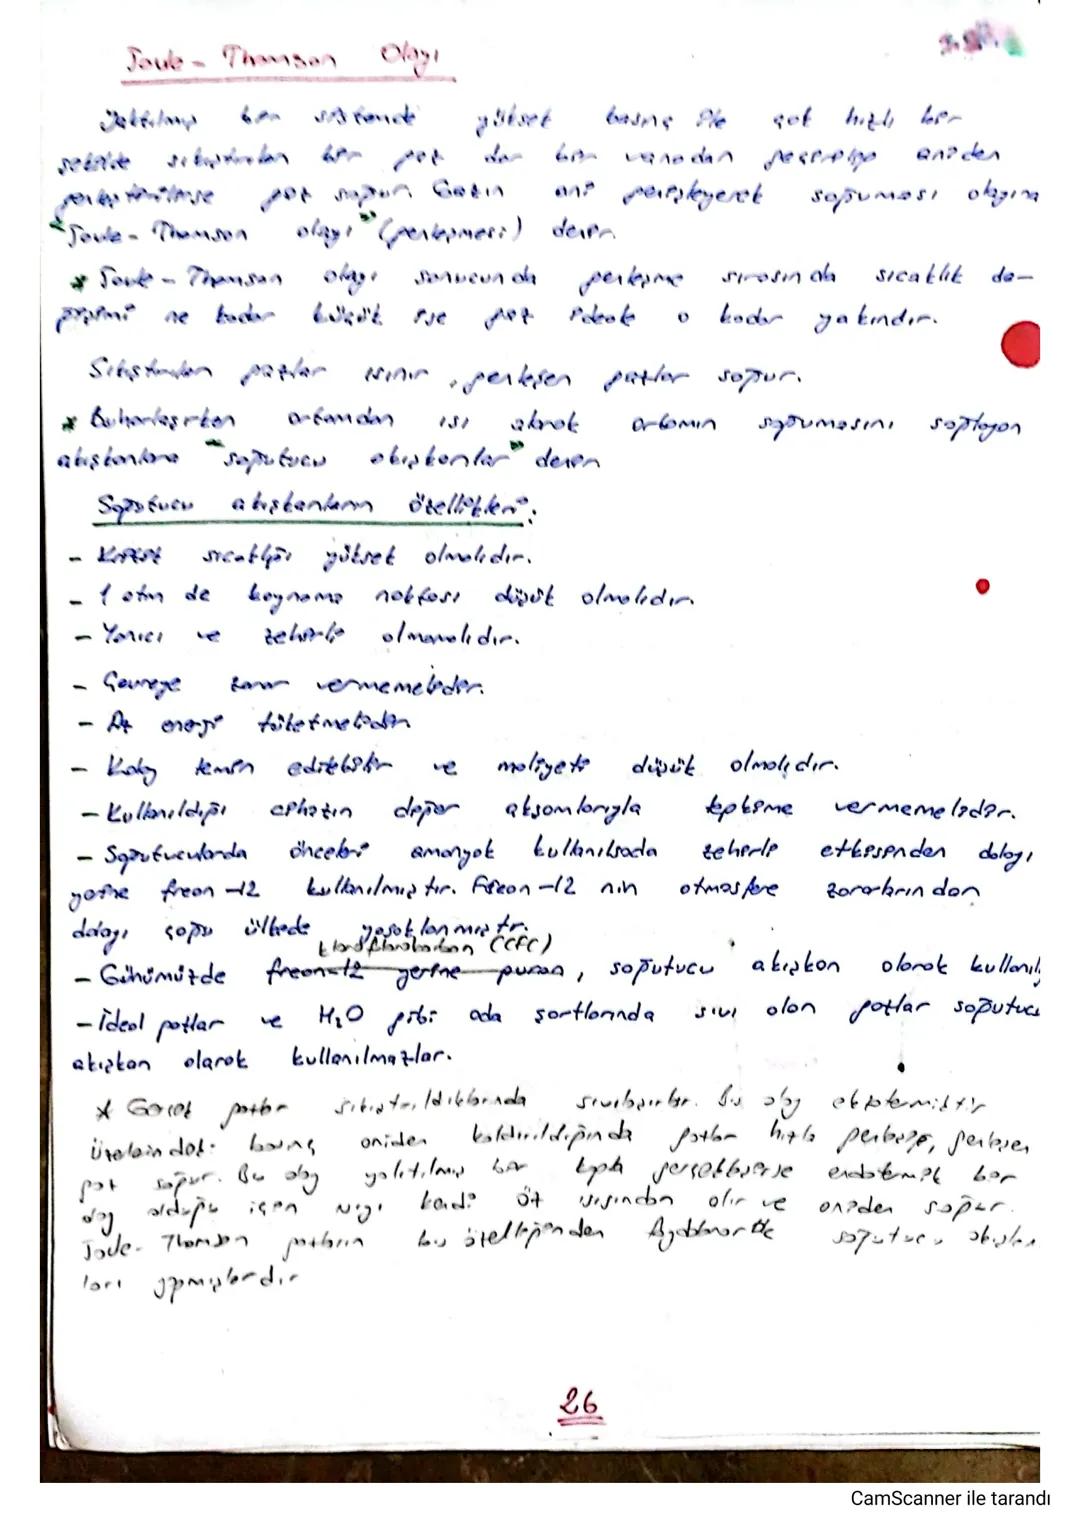 Joule - Thomson Olayı
Yalıtılmış bir sistemde yüksek basınç ile çok hızlı bir
şekilde sıkıştırılan bir gaz dar bir vanadan geçirilip aniden
genleştirilirse gaz soğur. Gazın ani genişleyerek soğuması olayına
"Joule - Thomson olayı" (genleşmesi) denir.
* Joule - Thomson olayı sonucunda genleşme sırasında sıcaklık de-
ğişimi ne kadar küçük ise gaz ideale o kadar yakındır.
Sıkıştırılan gazlar ısınır, genleşen gazlar soğur.
* Buharlaşırken ortamdan ısı alarak ortamın soğumasını sağlayan
akışkanlara "soğutucu akışkanlar" denir
Soğutucu akışkanların özellikleri:
- Kritik sıcaklığı yüksek olmalıdır.
- 1 atm de kaynama noktası düşük olmalıdır.
- Yanıcı ve zehirli olmamalıdır.
- Çevreye zarar vermemelidir.
- Az enerji tüketmelidir
- Kolay temin edilebilir ve maliyeti düşük olmalıdır.
- Kullanıldığı cihazın diğer aksamlarıyla tepkime vermemelidir.
- Soğutucularda önceleri amonyak kullanılsada zehirli etkisinden dolayı
yerine freon -12 kullanılmıştır. Freon -12 nin atmosfere zararlarından
dolayı çoğu ülkede yasaklanmıştır.
kloroflorokarbon (CFC)
- Günümüzde freon-12 yerine puron, soğutucu akışkon olarak kullanılı
- İdeal gazlar ve H₂O gibi oda şartlarında sıvı olan gazlar soğutucu
akışkan olarak kullanılmazlar.
* Gerçek gazlar sıkıştırıldıklarında sıvılaşırlar. Bu olay ekzotermiktir
Üzerlerindeki basınç aniden kaldırıldığında gazlar hızla genleşir, genleşen
gaz soğur. Bu olay yalıtılmış bir kapta gerçekleşirse endotermik bir
olay olduğu için ısıyı kendi öz ısısından alır ve aniden soğur.
Joule - Thomson gazların bu özelliğinden soğutucu akışkan
ları yapmışlardır
26
CamScanner ile tarandı